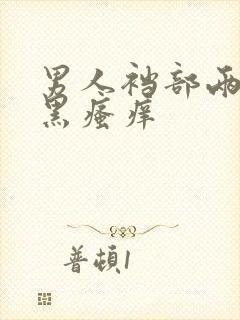 男人裆部两
黑瘙痒
普頓1